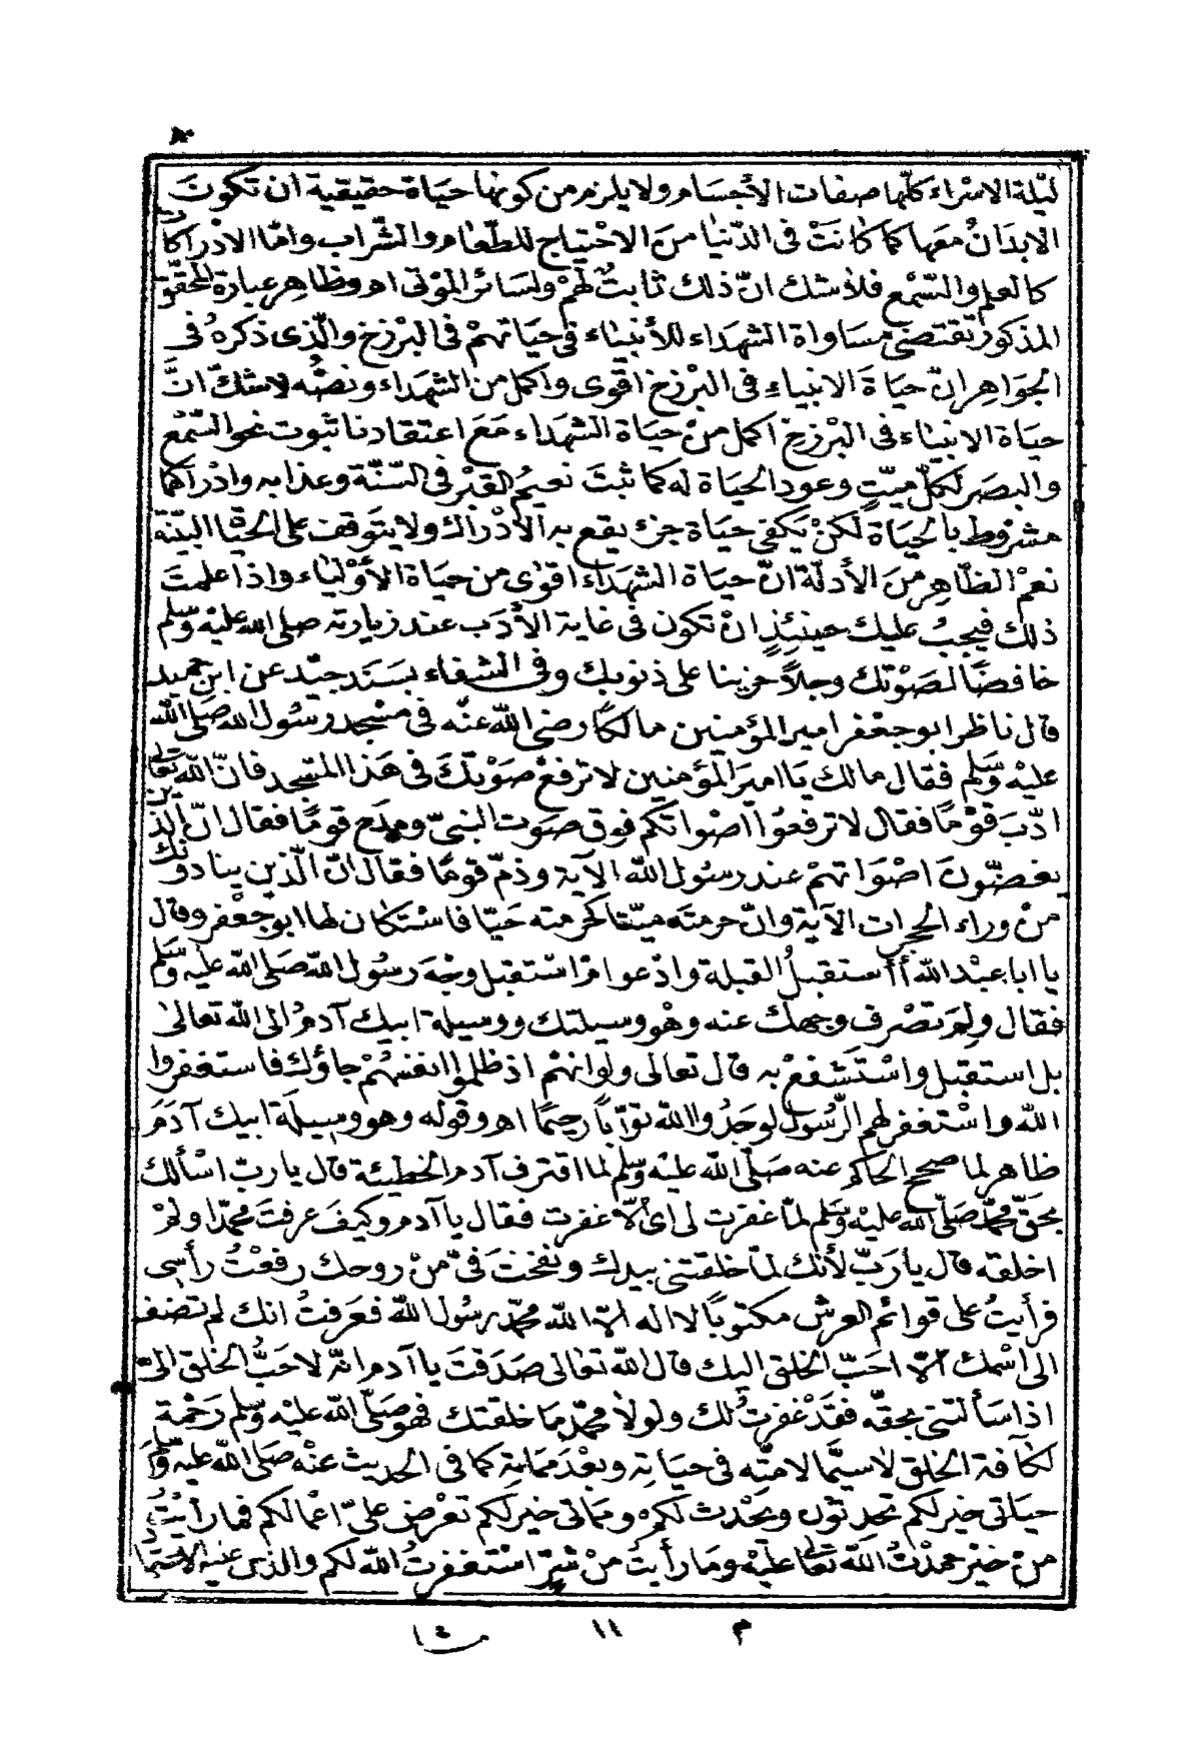 ٨٠
ليلة الاسراء كلّها صفات الأجسام ولا يلزم من كونها حياة حقيقية ان تكونَ
الابدانُ معها كما كانَتْ فى الدّنيا منَ الاحْتياج للطّعام والشّراب وامّا الادْراكات
كالعلم والسّمْع فلا شك انّ ذلك ثابتٌ لهمْ ولسَائر الموْتى اهـ وظاهر عبارة المحقّق
المذكور تقتضى مسَاواة الشهداء للأنبياء فى حَياتهمْ فى البرْزخ والّذى ذكرهُ فى
الجوَاهر انّ حيَاةَ الانبياءِ فى البرْزخ اقوى واكمل من الشهدَاء ونصُّه لاشكّ انَّ
حيَاة الانبيَاء فى البرْزخ اكمل منْ حيَاة الشهداء مَعَ اعتقادنا ثبوت نحو السّمْع
والبصَر لكلّ ميّتٍ وعود الحيَاة له كما ثبتَ نعيمُ القبْر فى السّنّة وعذابه وادْراكهما
مشرُوط بالحيَاة لكنْ يكفى حيَاة جزء يقع به الادْراك ولا يتوقف على الحيَاة البنيَة
نعمْ الظّاهر منَ الأدلّة انّ حيَاة الشهدَاء اقوٰى من حيَاة الأوْليَاء واذا علمتَ
ذلك فيجبُ عليك حينئِذٍ انْ تكون فى غاية الأدَب عند زيارته صلى الله عليْه وسَلم
خافضًا لصَوْتك وجلاً حزينا على ذنوبك وفى الشفاء بسَنَد جيّد عن ابن حميد
قال ناظر ابو جعْفر امير المؤمنين مالكًا رضى الله عنْه فى مسْجد رسُول الله صَلى الله
عليْه وسَلم فقال مالك يَا اميرَ المؤمنين لا ترفعْ صَوْتكَ فى هَذا المسْجد فانّ الله تعَالى
ادّبَ قوْمًا فقال لا ترفعُوْا اصْواتكم فوق صَوت النبىّ ومدَح قومًا فقال انّ الذين
يغضّونَ اصْوَاتهمْ عند رسُول الله الآية وذمّ قومًا فقال انّ الّذين ينادونك
منْ وراء الحجرات الآية وانّ حرمتَه ميّتا كحرمته حَيّا فاسْتكان لها ابو جعْفر وقال
يا ابا عبْد الله أأستقبلُ القبلة وادْعوا ام اسْتقبل وجْهَ رسُول الله صَلى الله عليْه وسَلم
فقال ولِمَ تصْرف وجهك عنه وهْو وسيلتك ووسيلة ابيك آدمُ الى الله تعالىٰ
بل استقبل واسْتشفعْ به قال تعالى ولوانهمْ اذ ظلموا انفسَهُمْ جاؤك فاستغفروا
الله واسْتغفر لهم الرّسُول لوجَدُوا الله توّابًا رحيمًا اهـ وقوله وهو وسيلَة ابيك آدَمَ
ظاهر لما صحح الحاكم عنه صَلّى الله عليْه وسَلم لما اقترف آدم الخطيئة قال يا ربّ اسْألك
بحَقّ محمّد صَلّى الله عليْه وسَلم لمّا غفرت لى اىْ الّا غفرت فقال يا آدم وكيفَ عرفتَ محمّدا ولمْ
اخلقه قال يا رَبّ لأنك لمّا خلقتنى بيدك ونفختَ فىّ منْ روحك رفعْتُ رأسى
فرأيتُ على قوائم العرش مكتوبًا لا اله الّا الله محمّد رسُول الله فعرفتُ انك لم تضف
الى اسْمك الّا احَبّ الخلق اليك قال الله تعَالى صَدَقتَ يا آدم انّه لاحَبُّ الخلق الىّ
اذا سَألتنى بحقّه فقدْ غفرتُ لك ولولا محمّد مَا خلقتك فهو صَلّى الله عليْه وسَلم رَحْمة
لكآفة الخلق لاسيّما لامتِّه فى حيَاتِه وبعْدَ ممَاتِه كما فى الحديث عنْه صَلى الله عليْه وسَلم
حيَاتى خير لكم تحدثوْن ويحْدث لكم ومَماتى خير لكم تعْرض علىّ اعْمالكم فما رأيْتُ
منْ خيْر حمدْتُ الله تعَالى عليْه ومَا رأيتُ منْ شرّ اسْتغفرتُ الله لكم والذى عليْه الاجتمَا
م ١١